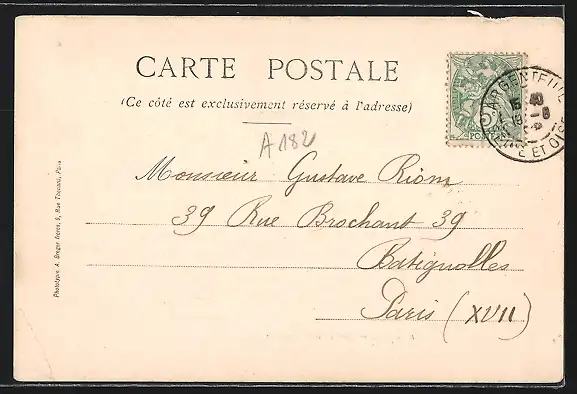 CARTE POSTALE
(Ce côté est exclusivement réservé à l'adresse)
A 182
Monsieur Gustave Riom
39 Rue Brochant 39
Batignolles
Paris (XVII)
Phototypie A. Breger frères, 9, Rue Thénard, Paris
ARGENTEUIL
ET OISE
5c
POSTES